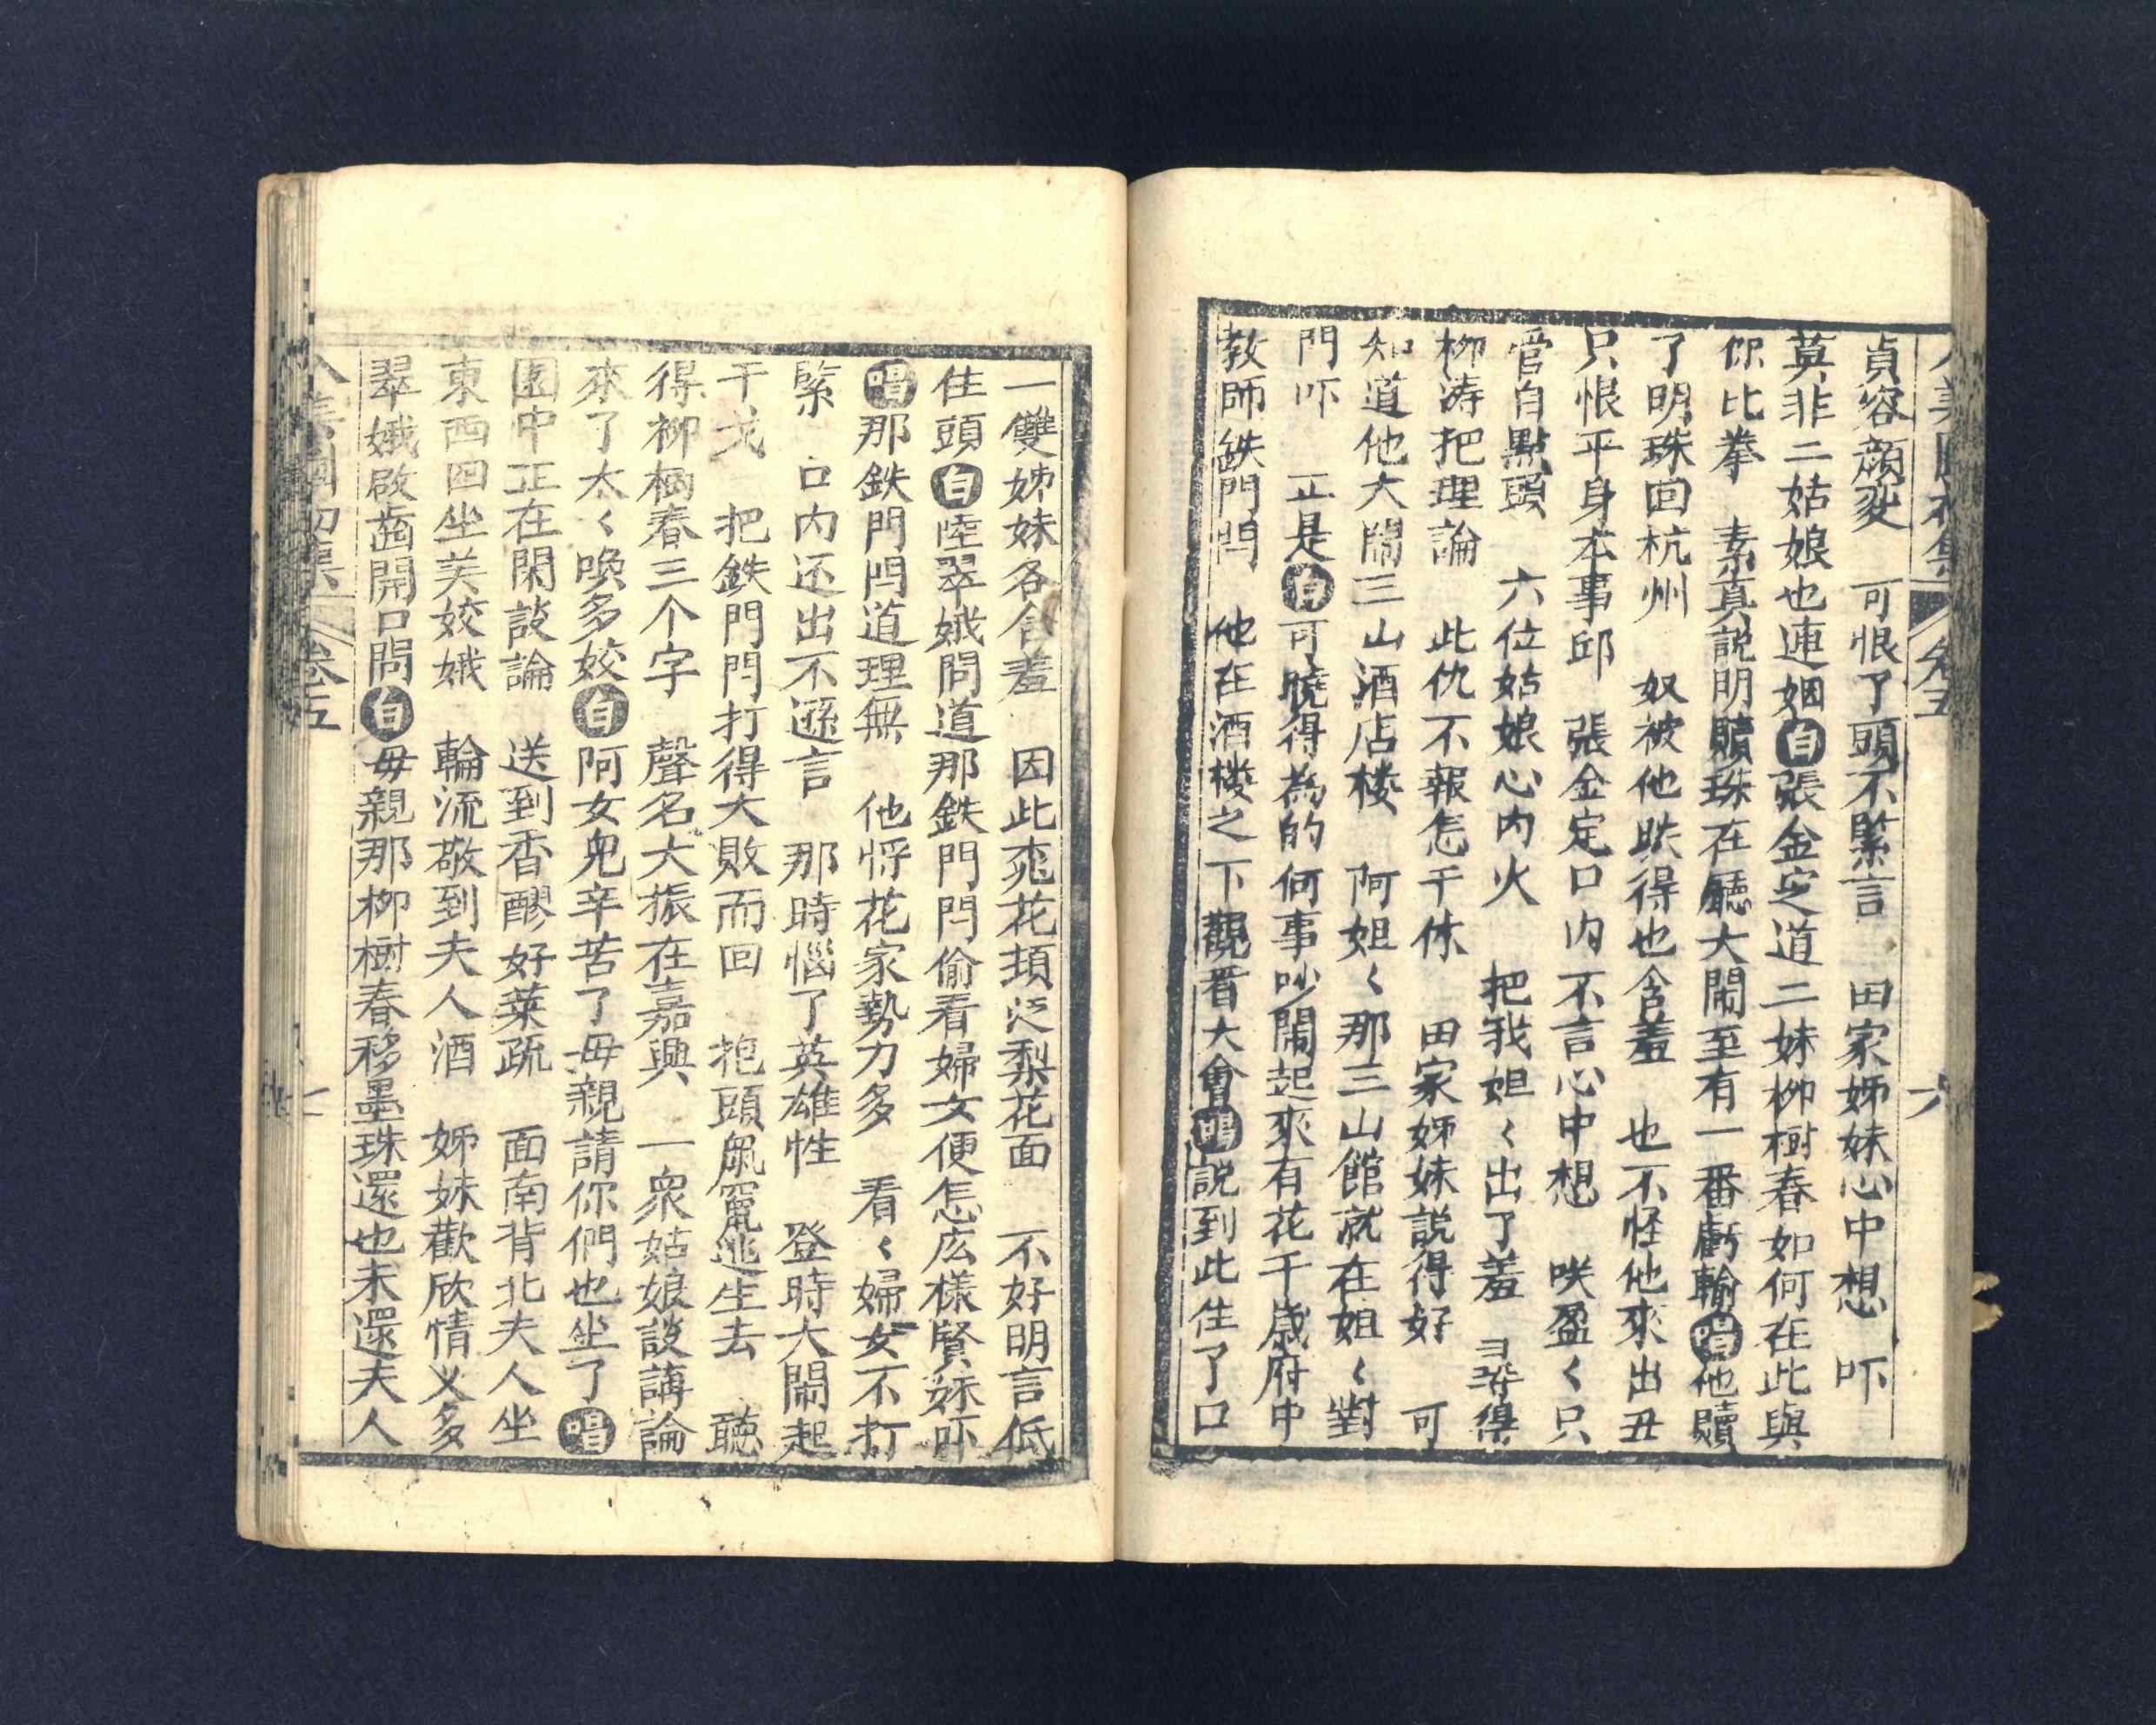 八美圖初集 卷五 六
貞容顔变 可恨了頭不緊言 田家姊妹心中想 吓
莫非二姑娘也連姻白張金定道二妹柳樹春如何在此與
你比拳 素真説明贖珠在廳大鬧至有一番虧輸唱他贖
了明珠回杭州 奴被他昳得也含羞 也不怪他來出丑
只恨平身本事邱 張金定口内不言心中想 咲盈〱只
管自點頭 六位姑娘心内火 把我姐〱出了羞 尋得
柳涛把理論 此仇不報怎干休 田家姊妹説得好 可
知道他大鬧三山酒店楼 阿姐〱那三山館就在姐〱對
門吓 正是白可曉得為的何事吵鬧起來有花千歳府中
教師鉄門閂 他在酒楼之下觀看大會唱説到此住了口
一雙姊妹各含羞 因此桃花頰泛梨花面 不好明言低
住頭白陸翠娥問道那鉄門閂偷看婦女便怎広樣賢妹吓
唱那鉄門閂道理無 他将花家勢力多 看〱婦女不打
緊 口内还出不遜言 那時惱了英雄性 登時大鬧起
干戈 把鉄門閂打得大敗而回 抱頭䑕竄逃生去 聽
得柳樹春三个字 聲名大振在嘉興 一衆姑娘談講論
來了太〱喚多姣白阿女兒辛苦了毋親請你們也坐了唱
園中正在閑談論 送到香醪好菜疏 面南背北夫人坐
東西四坐美姣娥 輪流敬到夫人酒 姊妹歡欣情义多
翠娥啟齒開口問白毋親那柳樹春移墨珠還也未還夫人
八美圖初集 卷五